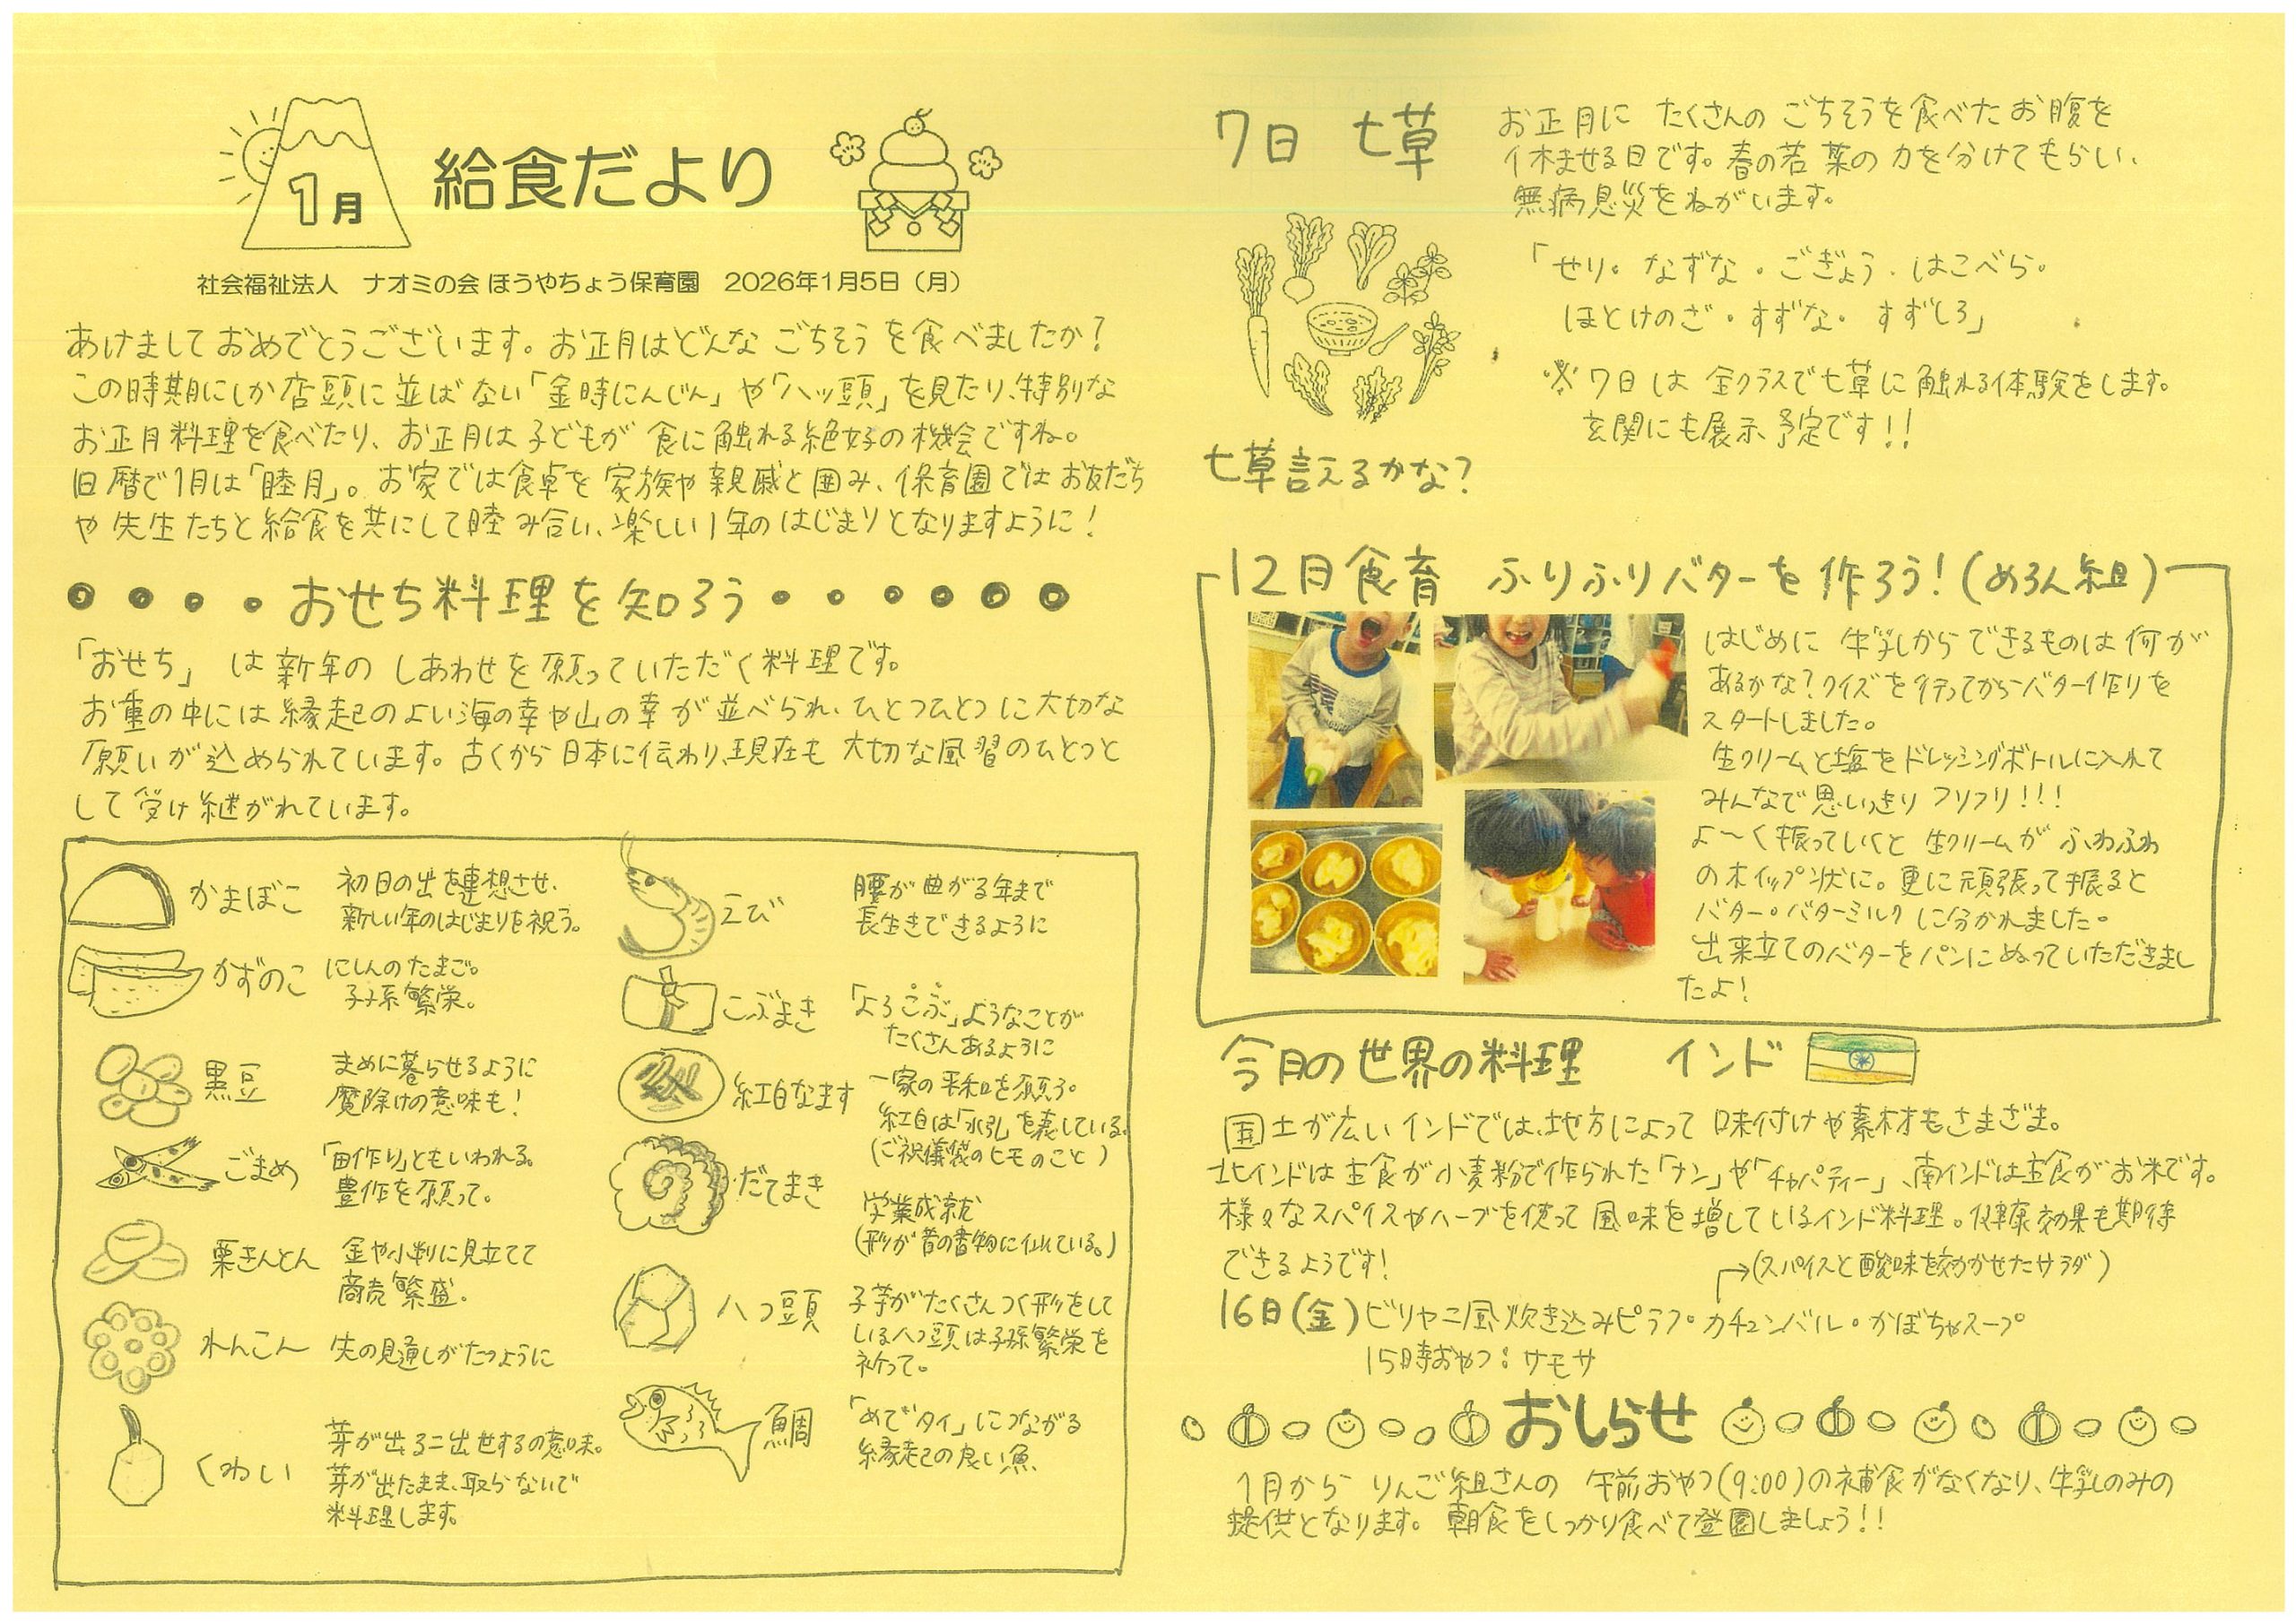 1月
給食だより
社会福祉法人　ナオミの会 ほうやちょう保育園　2026年1月5日（月）
あけましておめでとうございます。お正月はどんなごちそうを食べましたか？
この時期にしか店頭に並ばない「金時にんじん」や「八ッ頭」を見たり、特別な
お正月料理を食べたり、お正月は子どもが食に触れる絶好の機会ですね。
旧暦で1月は「睦月」。お家では食卓を家族や親戚と囲み、保育園ではお友だち
や先生たちと給食を共にして睦み合い、楽しい1年のはじまりとなりますように！
おせち料理を知ろう
「おせち」は新年のしあわせを願っていただく料理です。
お重の中には縁起のよい海の幸や山の幸が並べられ、ひとつひとつに大切な
願いが込められています。古くから日本に伝わり、現在も大切な風習のひとつと
して受け継がれています。
かまぼこ　初日の出を連想させ、
新しい年のはじまりを祝う。
かずのこ　にしんのたまご。
子孫繁栄。
黒豆　まめに暮らせるように
魔除けの意味も！
ごまめ　「田作り」ともいわれる。
豊作を願って。
栗きんとん　金や小判に見立てて
商売繁盛。
れんこん　先の見通しがたつように
くわい　芽が出る＝出世するの意味。
芽が出たまま、取らないで
料理します。
えび　腰が曲がる年まで
長生きできるように
こぶまき　「よろこぶ」ようなことが
たくさんあるように
紅白なます　一家の平和を願う。
紅白は「水引」を表している。
（ご祝儀袋のヒモのこと）
だてまき　学業成就
（形が昔の書物に似ている。）
八つ頭　子芋がたくさんつく形をして
いる八つ頭は子孫繁栄を
祈って。
鯛　「めでタイ」につながる
縁起の良い魚
7日　七草
お正月にたくさんのごちそうを食べたお腹を
休ませる日です。春の若菜の力を分けてもらい、
無病息災をねがいます。
「せり・なずな・ごぎょう・はこべら・
ほとけのざ・すずな・すずしろ」
※7日は金クラスで七草に触れる体験をします。
玄関にも展示予定です!!
七草言えるかな？
12月食育　ふりふりバターを作ろう！（めろん組）
はじめに牛乳からできるものは何が
あるかな？クイズを行ってからバター作りを
スタートしました。
生クリームと塩をドレッシングボトルに入れて
みんなで思いっきりフリフリ!!!
よ〜く振っていくと生クリームがふわふわ
のホイップ状に。更に頑張って振ると
バター・バターミルクに分かれました。
出来立てのバターをパンにぬっていただきまし
たよ！
今月の世界の料理　インド
国土が広いインドでは、地方によって味付けや素材もさまざま。
北インドは主食が小麦粉で作られた「ナン」や「チャパティー」、南インドは主食がお米です。
様々なスパイスやハーブを使って風味を増しているインド料理。健康効果も期待
できるようです！
（スパイスと酸味を効かせたサラダ）
16日（金）ビリヤニ風炊き込みピラフ・カチュンバル・かぼちゃスープ
15時おやつ：サモサ
おしらせ
1月からりんご組さんの午前おやつ（9:00）の補食がなくなり、牛乳のみの
提供となります。朝食をしっかり食べて登園しましょう!!